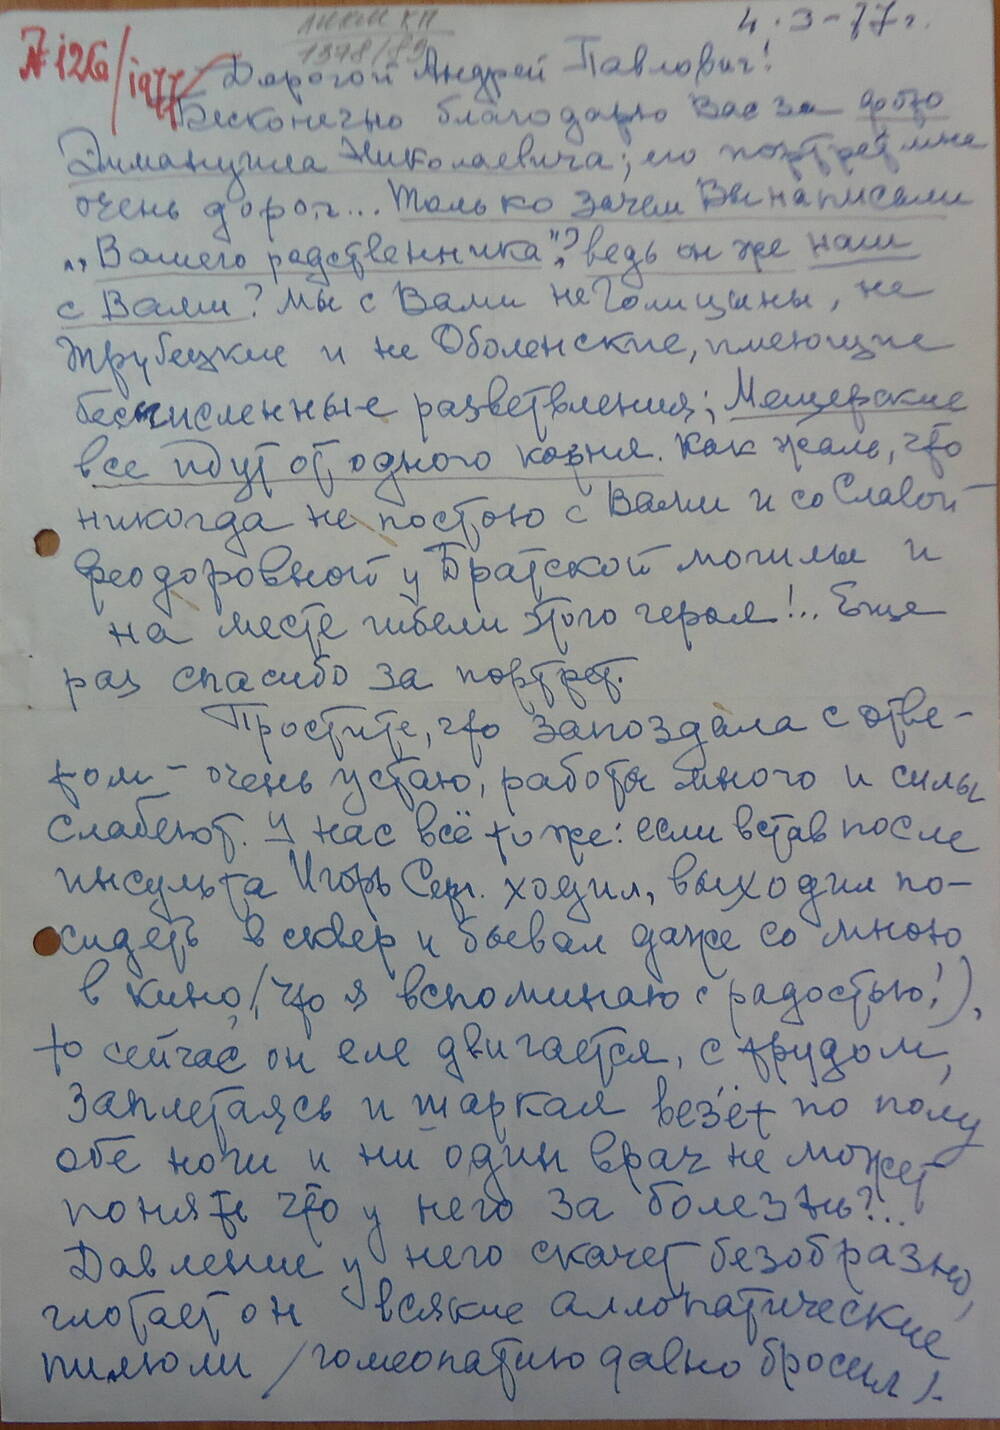 4.3-77 г.
ЛИКМ КП
1378/89
№ 126/1977
Дорогой Андрей Павлович!
Бесконечно благодарю Вас за фото
Эммануила Николаевича; его портрет мне
очень дорог... Только зачем Вы написали
„Вашего родственника"? ведь он же наш
с Вами? Мы с Вами не Голицыны, не
Трубецкие и не Оболенские, имеющие
бесчисленные разветвления; Мещерские
все идут от одного корня. Как жаль, что
никогда не постою с Вами и со Славой
Феодоровной у Братской могилы и
на месте гибели этого героя!.. Еще
раз спасибо за портрет.
Простите, что запоздала с отве-
том - очень устаю, работы много и силы
слабеют. У нас всё то же: если встав после
инсульта Игорь Серг. ходил, выходил по-
сидеть в сквер и бывал даже со мною
в кино, (что я вспоминаю с радостью!),
то сейчас он еле двигается, с трудом,
заплетаясь и шаркая везёт по полу
обе ноги и ни один врач не может
понять что у него за болезнь?...
Давление у него скачет безобразно,
глотает он всякие аллопатические
пилюли /гомеопатию давно бросил/.